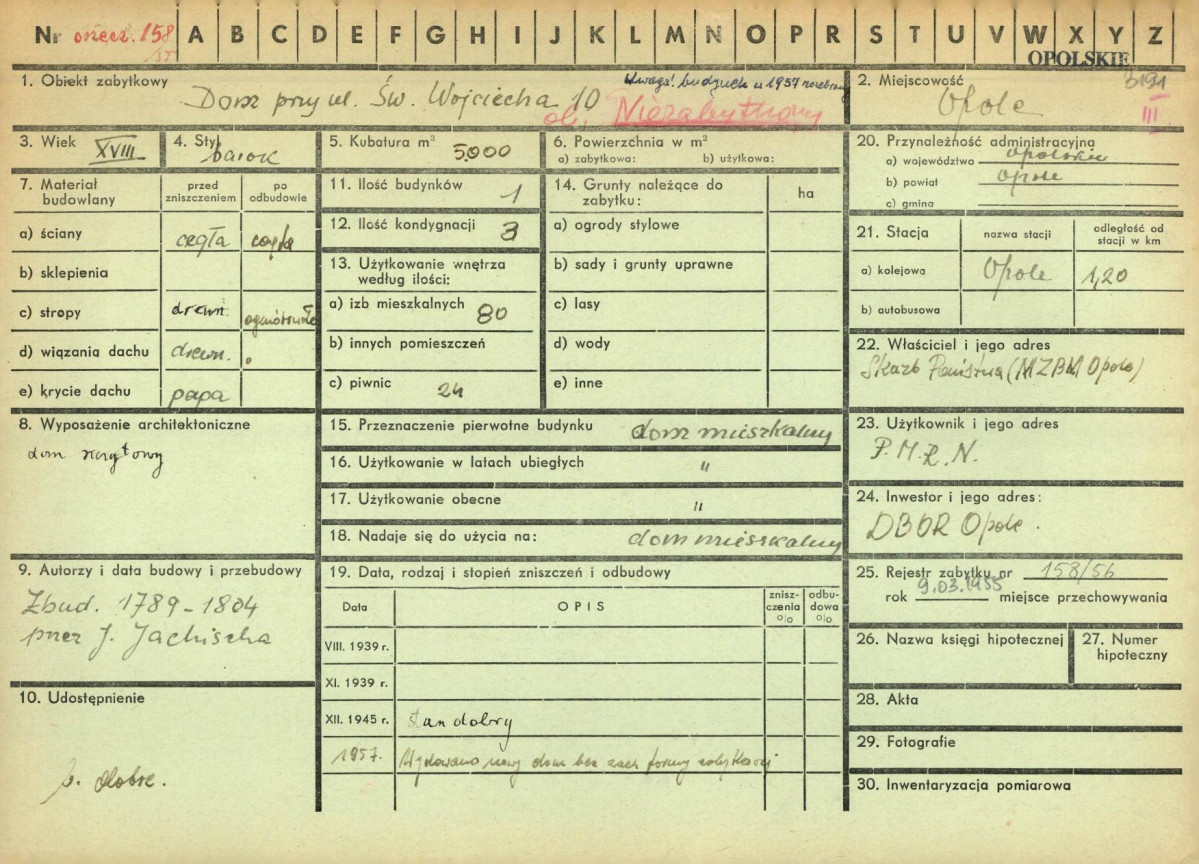 Nr orzecz. 158 A B C D E F G H I J K L M N O P R S T U V W X Y Z
OPOLSKIE
1. Obiekt zabytkowy
Uwaga! budynek w 1957 rozebrany
Dom przy ul. Św. Wojciecha 10
ob. Niezabytkowy
2. Miejscowość
3191
Opole
III
3. Wiek XVIII
4. Styl barok
5. Kubatura m³ 5,000
6. Powierzchnia w m²
a) zabytkowa: b) użytkowa:
20. Przynależność administracyjna
a) województwo opolskie
b) powiat Opole
c) gmina
7. Materiał budowlany
przed zniszczeniem
po odbudowie
a) ściany cegła cegła
b) sklepienia
c) stropy drewn. ogniotrwałe
d) wiązania dachu drewn. "
e) krycie dachu papa
11. Ilość budynków 1
12. Ilość kondygnacji 3
13. Użytkowanie wnętrza
według ilości:
a) izb mieszkalnych 80
b) innych pomieszczeń
c) piwnic 24
14. Grunty należące do
zabytku:
ha
a) ogrody stylowe
b) sady i grunty uprawne
c) lasy
d) wody
e) inne
21. Stacja
nazwa stacji
odległość od
stacji w km
a) kolejowa Opole 1,20
b) autobusowa
22. Właściciel i jego adres
Skarb Państwa (MZBM Opole)
8. Wyposażenie architektoniczne
dom szczytowy
15. Przeznaczenie pierwotne budynku dom mieszkalny
16. Użytkowanie w latach ubiegłych "
17. Użytkowanie obecne "
18. Nadaje się do użycia na: dom mieszkalny
23. Użytkownik i jego adres
P.M.R.N.
24. Inwestor i jego adres:
DBOR Opole.
9. Autorzy i data budowy i przebudowy
Zbud. 1789-1804
przez J. Jachischa
19. Data, rodzaj i stopień zniszczeń i odbudowy
Data
OPIS
znisz-
czenia
o/o
odbu-
dowa
o/o
VIII. 1939 r.
XI. 1939 r.
XII. 1945 r. stan dobry
1957. Wybudowano nowy dom bez zach formy zabytkowej
25. Rejestr zabytku nr 158/56
rok 9.03.1955 miejsce przechowywania
26. Nazwa księgi hipotecznej
27. Numer
hipoteczny
10. Udostępnienie
b. dobre.
28. Akta
29. Fotografie
30. Inwentaryzacja pomiarowa